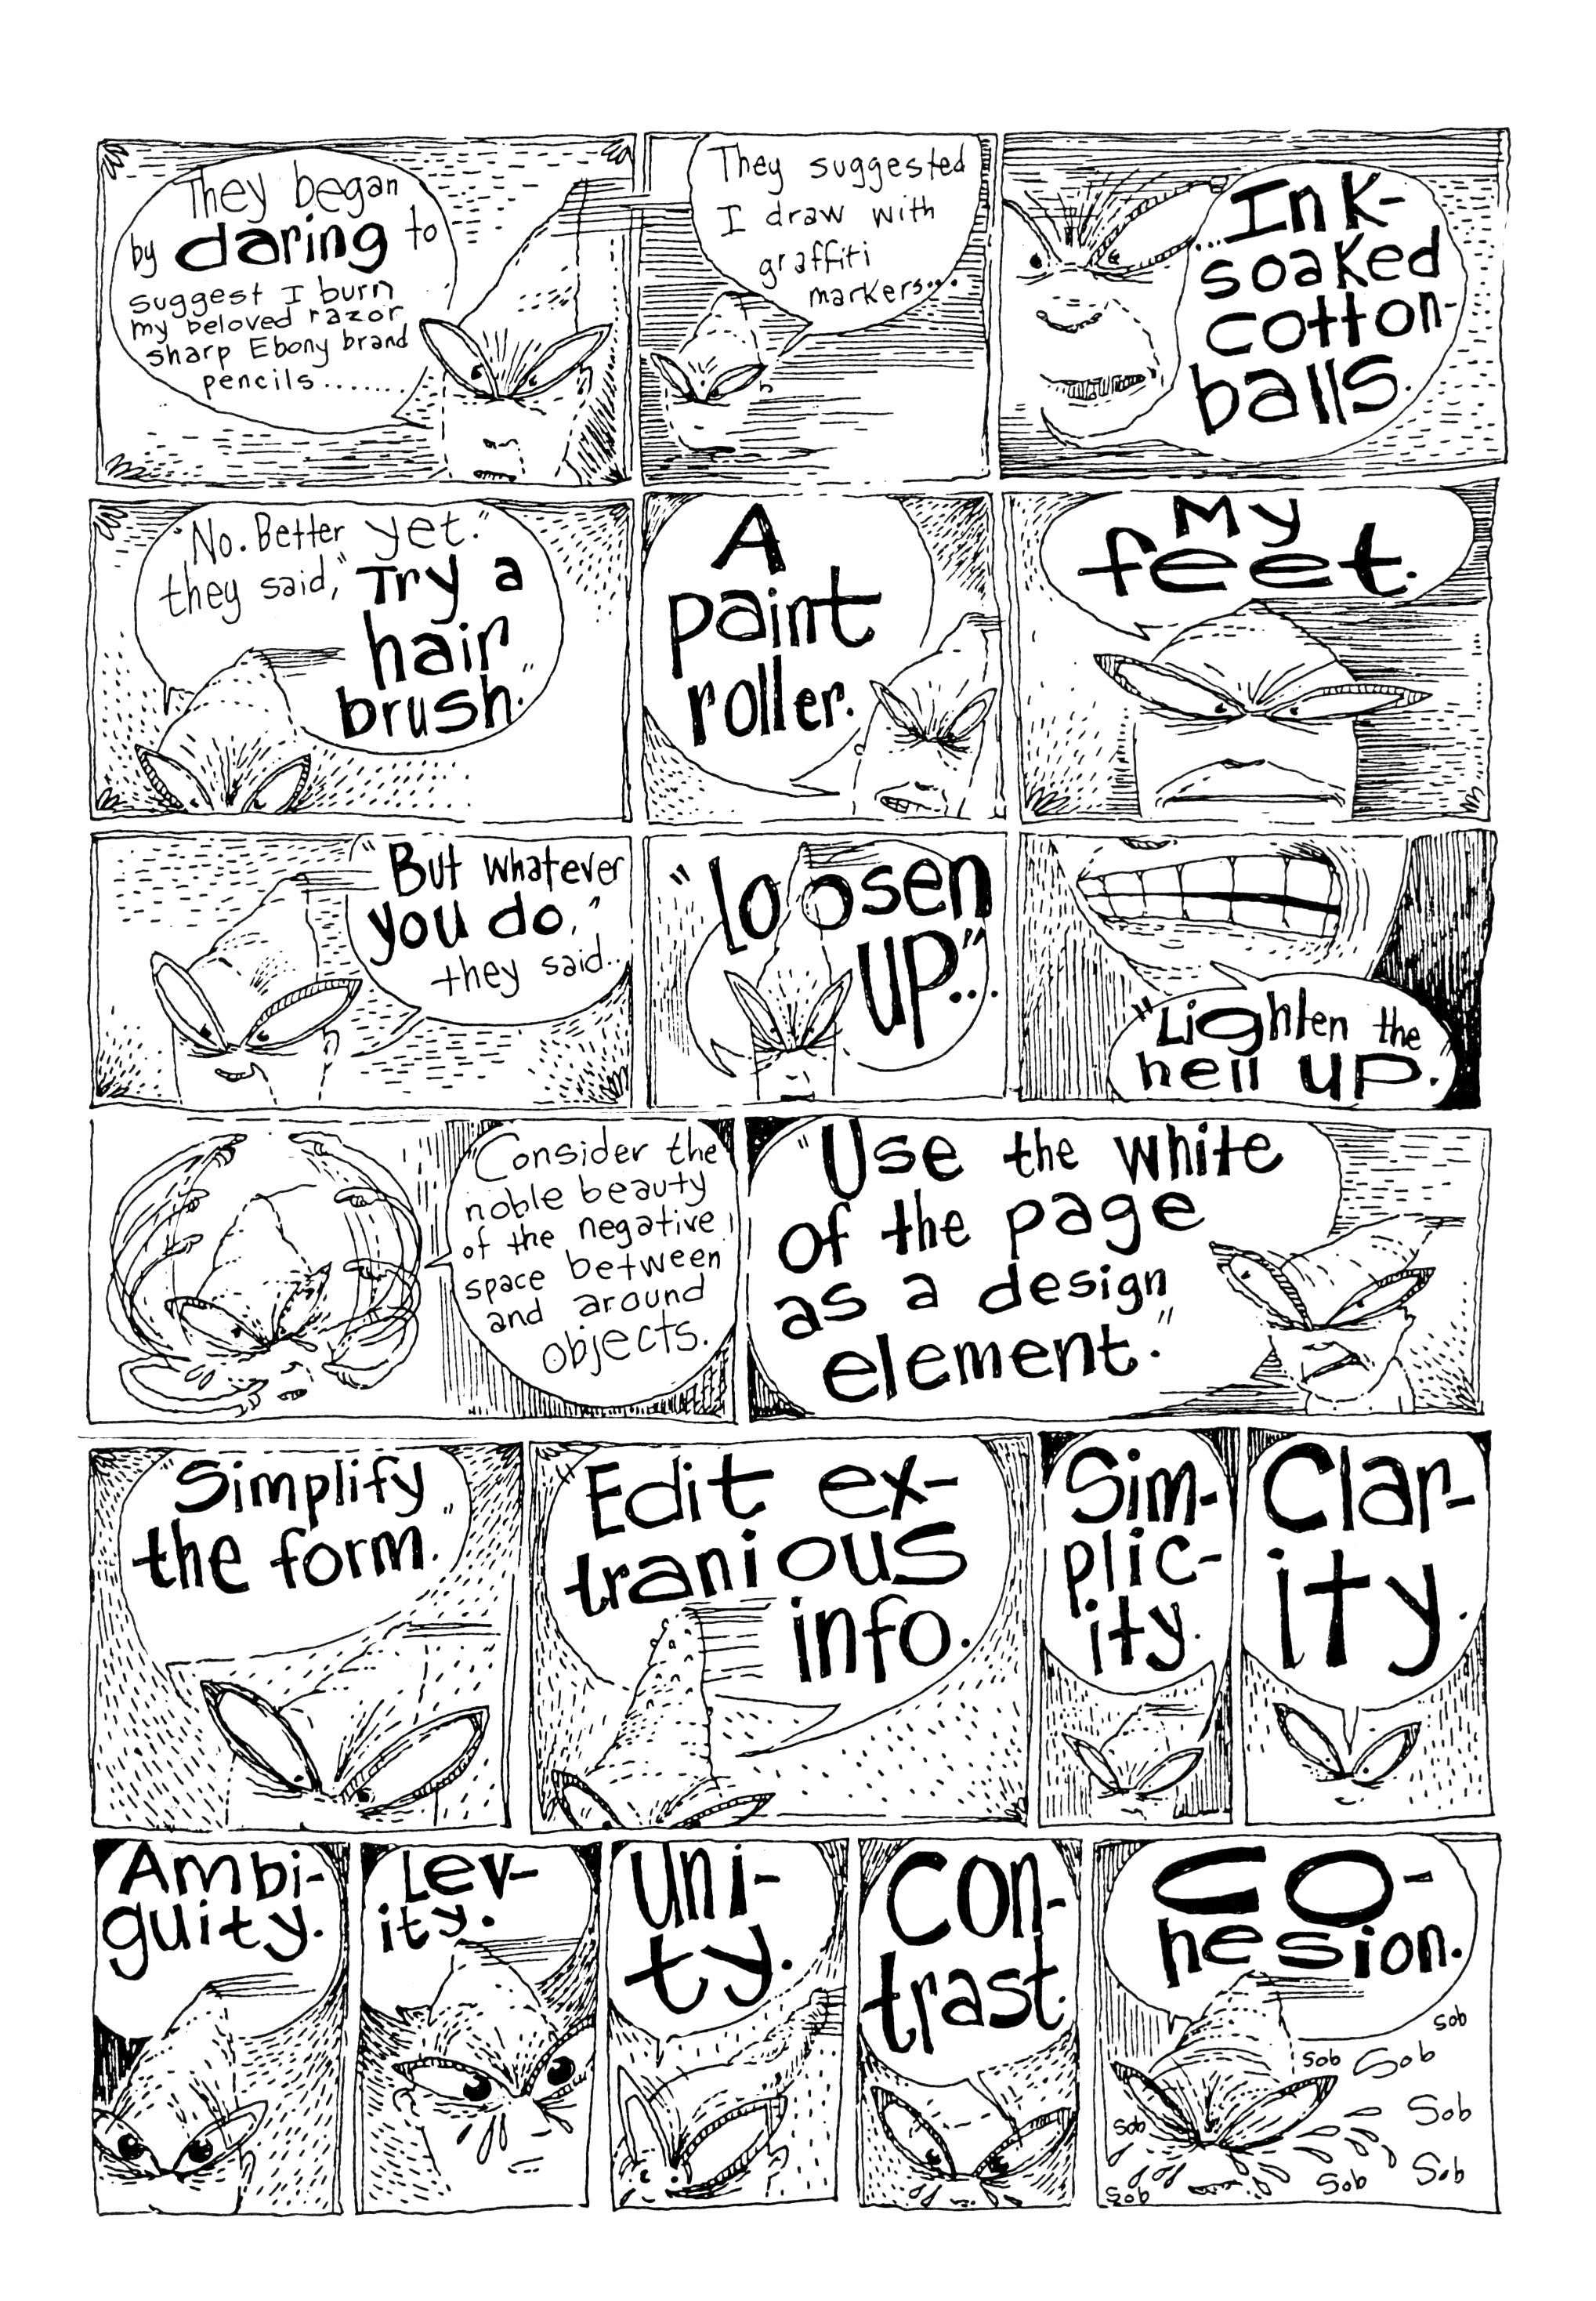 They began
by daring to
suggest I burn
my beloved razor
sharp Ebony brand
pencils.......
They suggested
I draw with
graffiti
markers....
...Ink-
soaked
cotton-
balls.
"No. Better yet."
they said, "Try a
hair
brush."
A
paint
roller.
My
feet.
"But whatever
you do,"
they said..
"loosen
up"...
"Lighten the
hell up.
Consider the
noble beauty
of the negative
space between
and around
objects.
"Use the white
of the page
as a design
element."
"Simplify
the form."
"Edit ex-
tranious
info.
Sim-
plic-
ity.
Clar-
ity.
Ambi-
guity.
Lev-
ity.
Uni-
ty.
Con-
trast.
Co-
hesion.
sob
sob
Sob
Sob
sob
Sob
Sob
Sob